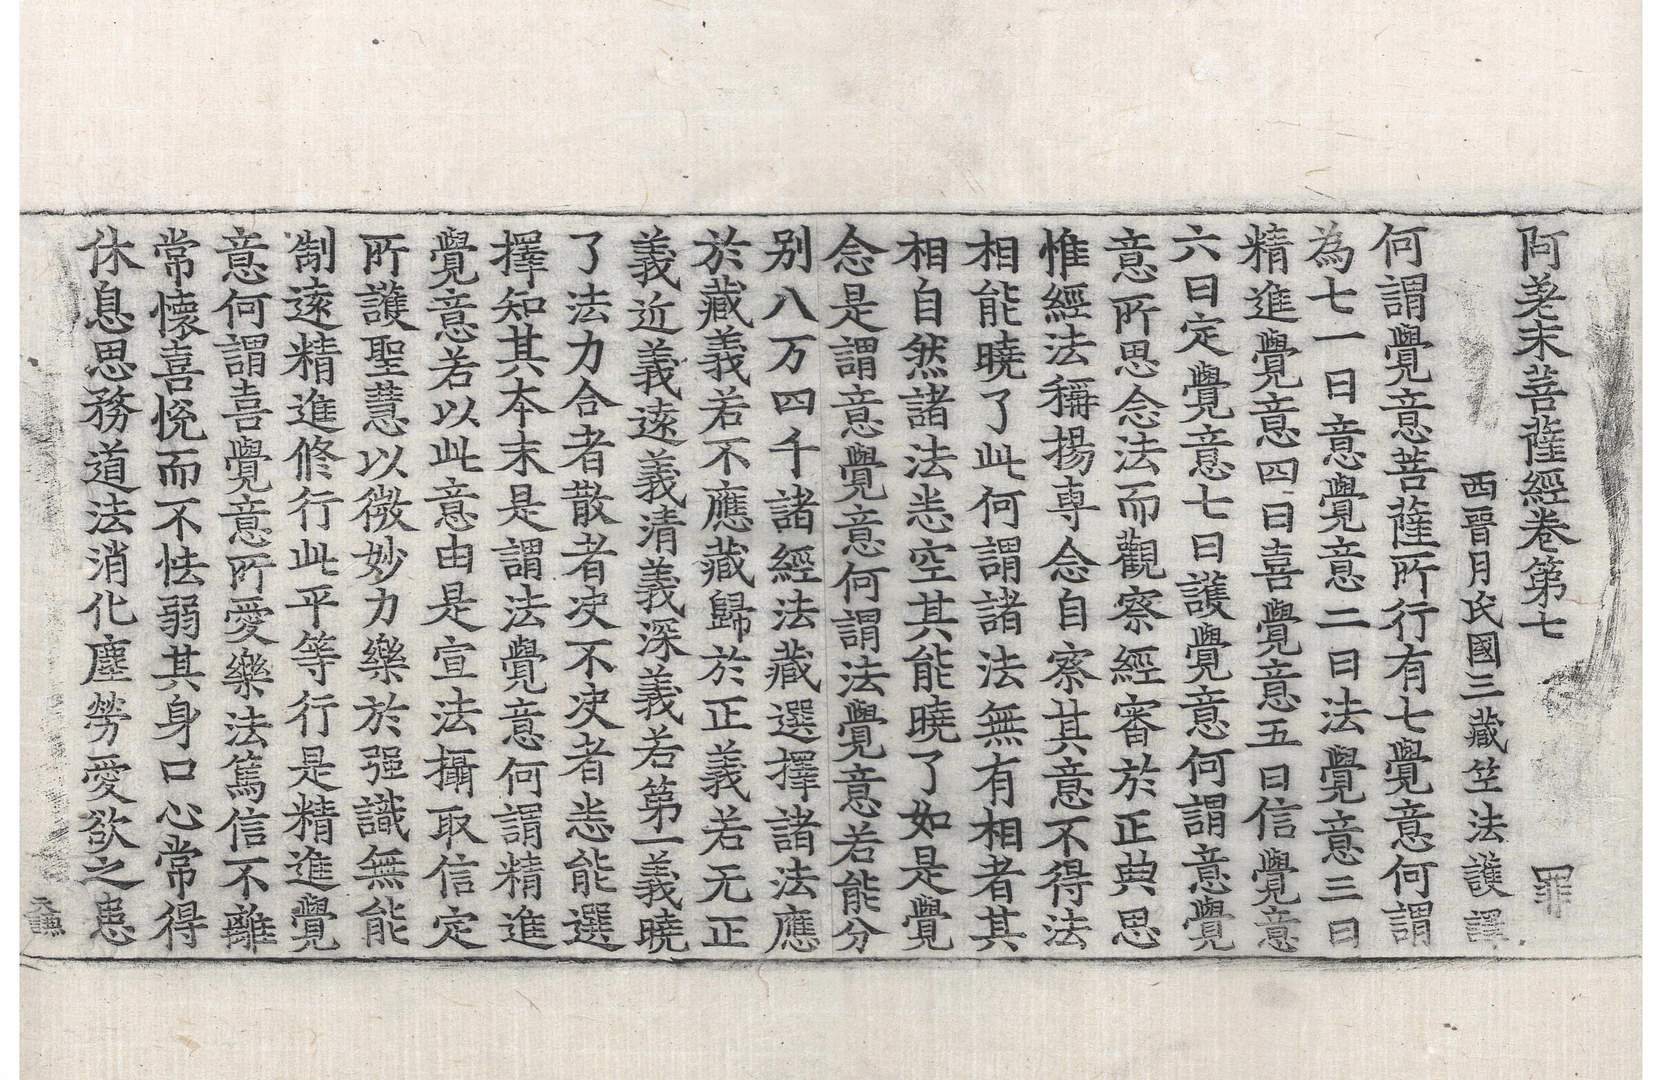 阿差末菩薩經卷第七 罪
西晉月氏國三藏竺法護譯
何謂覺意菩薩所行有七覺意何謂
為七一曰意覺意二曰法覺意三曰
精進覺意四曰喜覺意五曰信覺意
六曰定覺意七曰護覺意何謂意覺
意所思念法而觀察經審於正典思
惟經法稱揚專念自察其意不得法
相能曉了此何謂諸法無有相者其
相自然諸法悉空其能曉了如是覺
念是謂意覺意何謂法覺意若能分
别八万四千諸經法藏選擇諸法應
於藏義若不應藏歸於正義若无正
義近義遠義清義深義若第一義曉
了法力合者散者决不决者悉能選
擇知其夲末是謂法覺意何謂精進
覺意若以此意由是宣法攝取信定
所護聖慧以微妙力樂於强識無能
制遠精進修行此平等行是精進覺
意何謂喜覺意所愛樂法篤信不離
常懷喜悅而不怯弱其身口心常得
休息思務道法消化塵勞愛欲之患